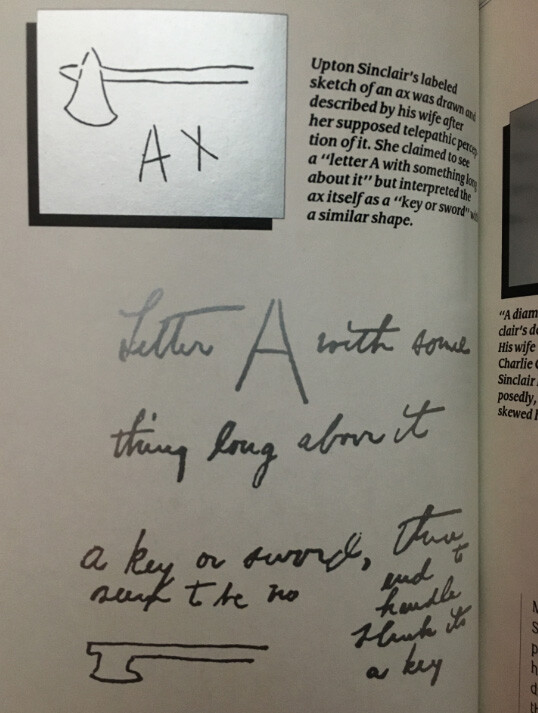 AX
Upton Sinclair's labeled
sketch of an ax was drawn and
described by his wife after
her supposed telepathic percep
tion of it. She claimed to see
a "letter A with something long
about it" but interpreted the
ax itself as a "key or sword" wi
a similar shape.
Letter A with some
thing long above it
a key or sword, there
seem to be no
end to
handle
think its
a key
"A diam
clair's d
His wife
Charlie C
Sinclair
posedly,
skewed